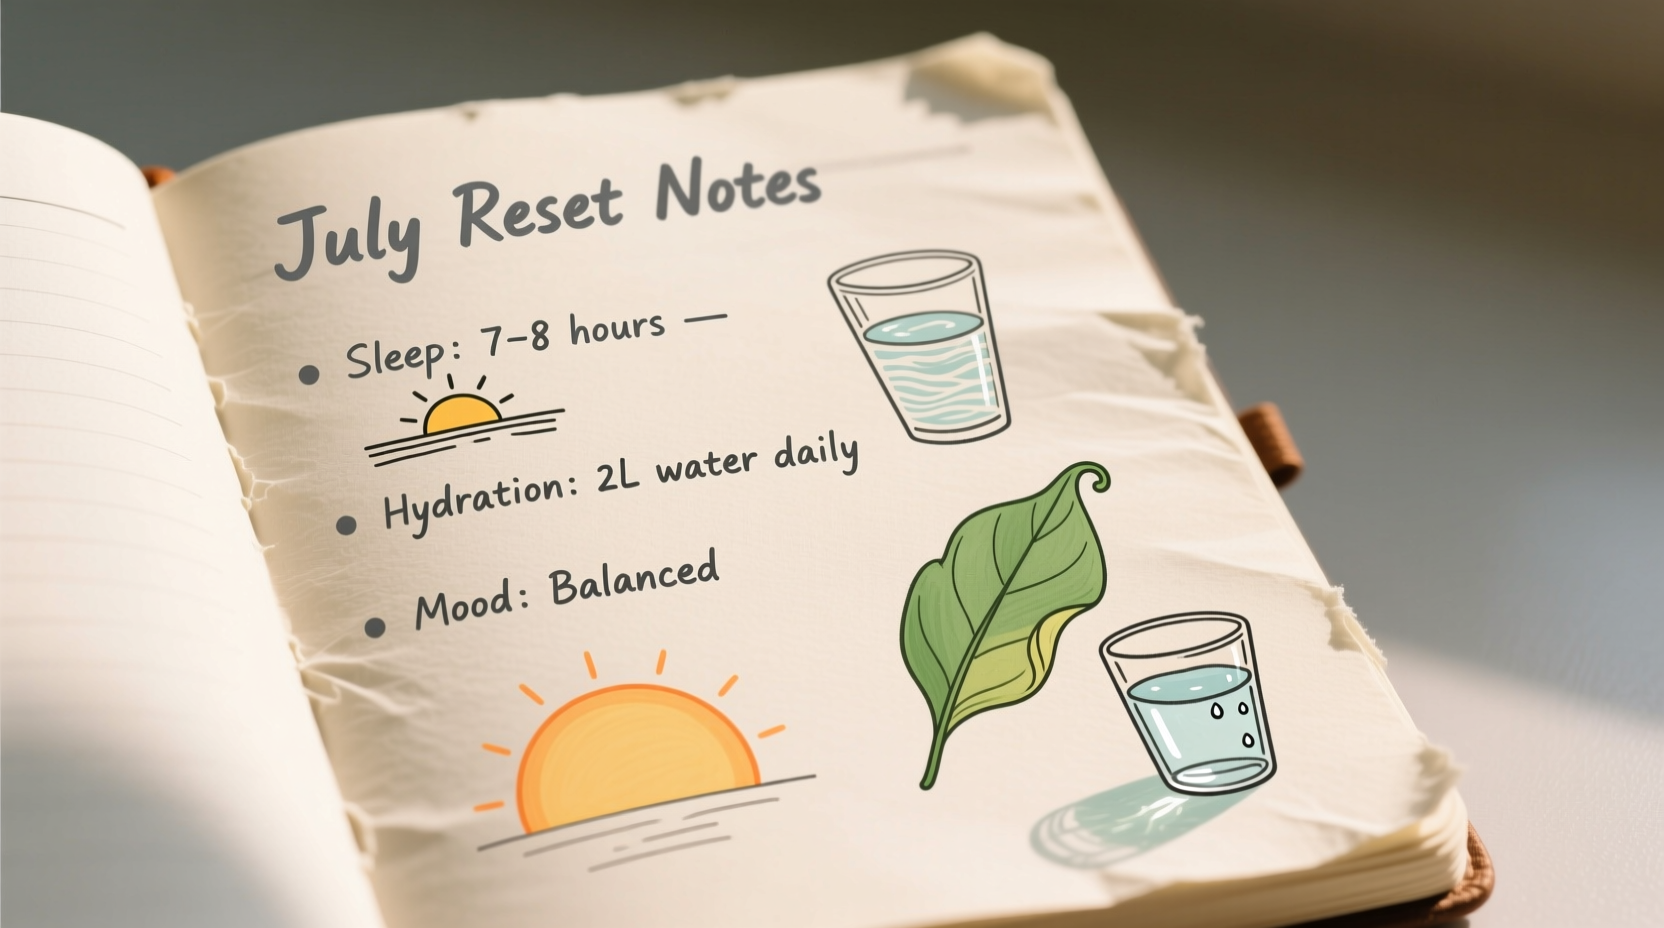 July Reset Notes
• Sleep: 7–8 hours —
• Hydration: 2L water daily
• Mood: Balanced